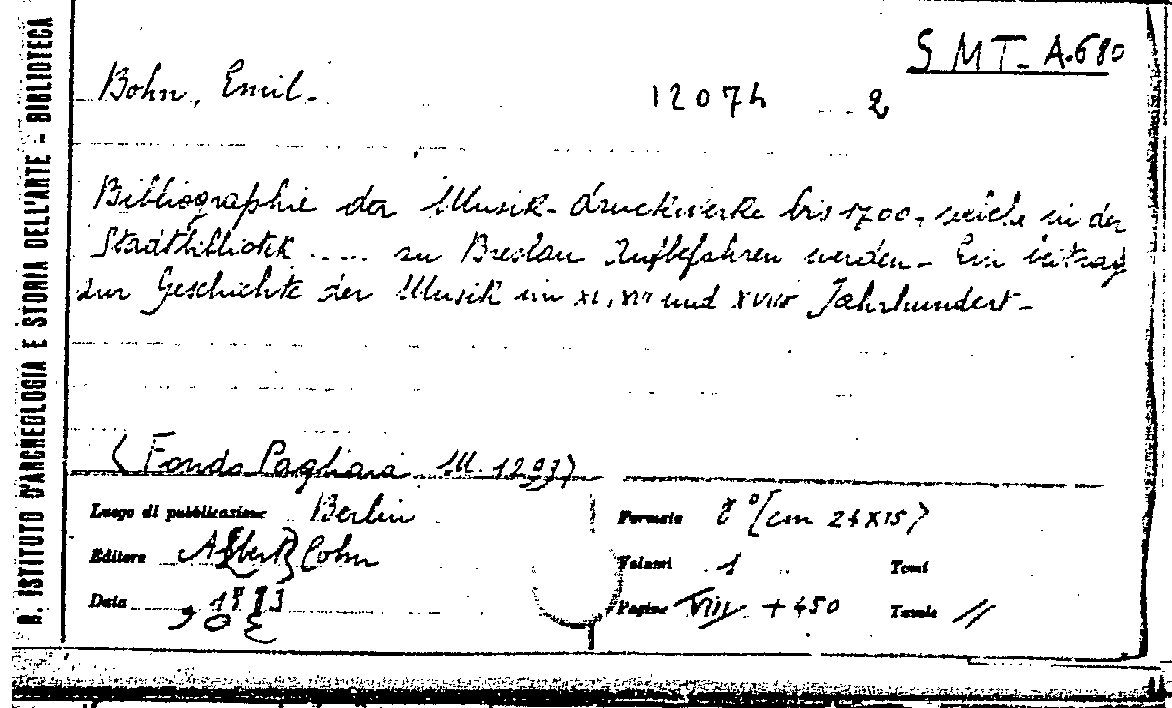 R. ISTITUTO D'ARCHEOLOGIA E STORIA DELL'ARTE - BIBLIOTECA
S MT- A.680
Bohn, Emil-
12074 2
Bibliographie der Musik-druckwerke bis 1700, welche in der
Stadtbibliotek ..... zu Breslau Aufbefahren werden- Ein beitrag
zur Geschichte der Musik im XI, XVI und XVII Jahrhundert-
(Fondo Pagliara M. 1297)
Luogo di pubblicazione Berlin
Formato 8° (cm 24x15)
Editore Albert Cohn
Volumi 1 Tomi
Data 1883
Pagine VIII + 450 Tavole //